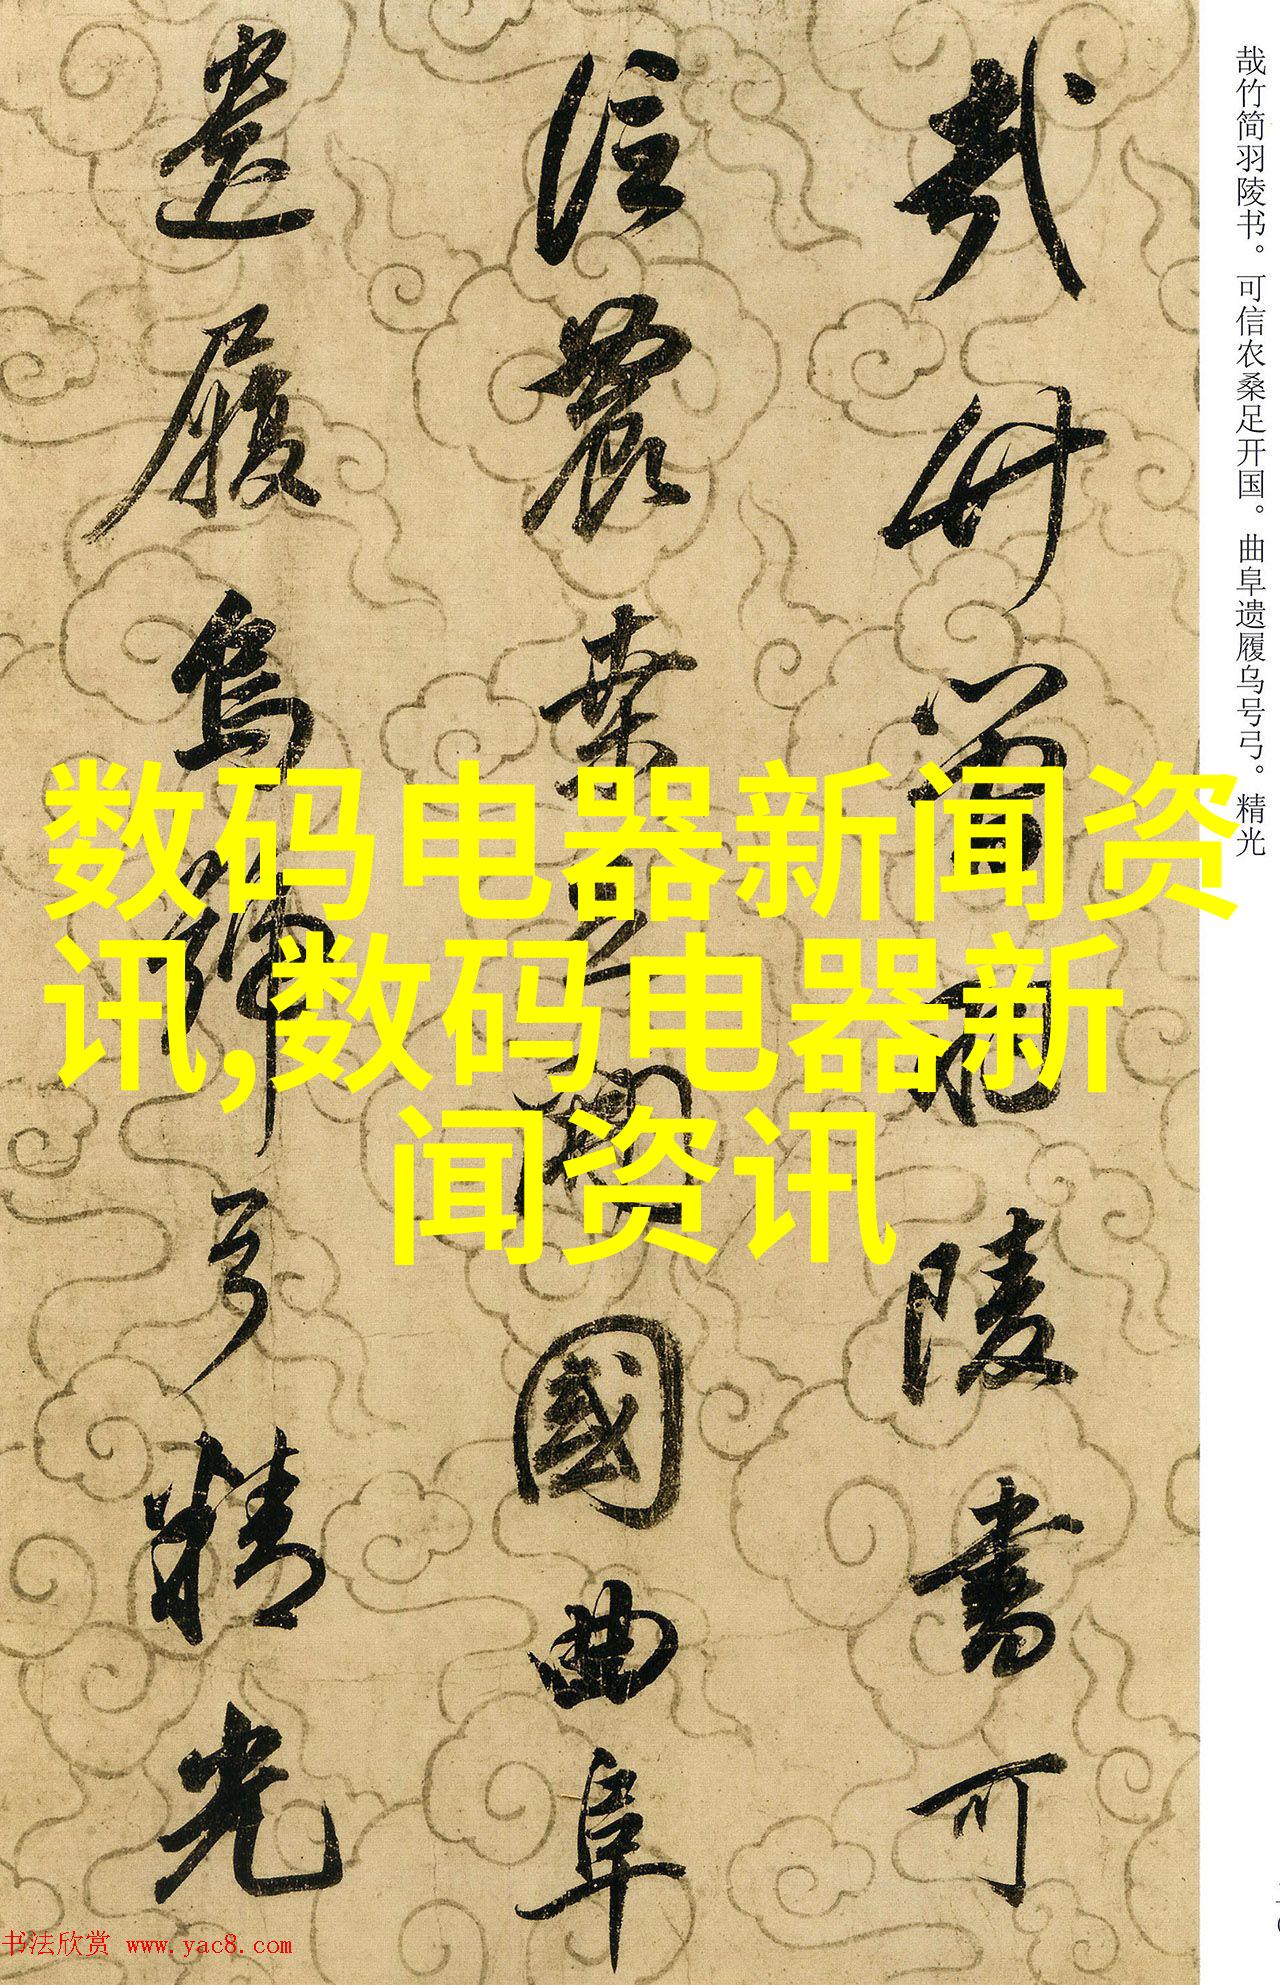 哉竹简羽陵书。可信农桑足开国。曲阜遗履乌号弓。精光
哉竹簡羽陵書可
信農桑足開國曲阜
遺履烏號弓精光
数码电器新闻资
讯,数码电器新
闻资讯
书法欣赏 www.yac8.com